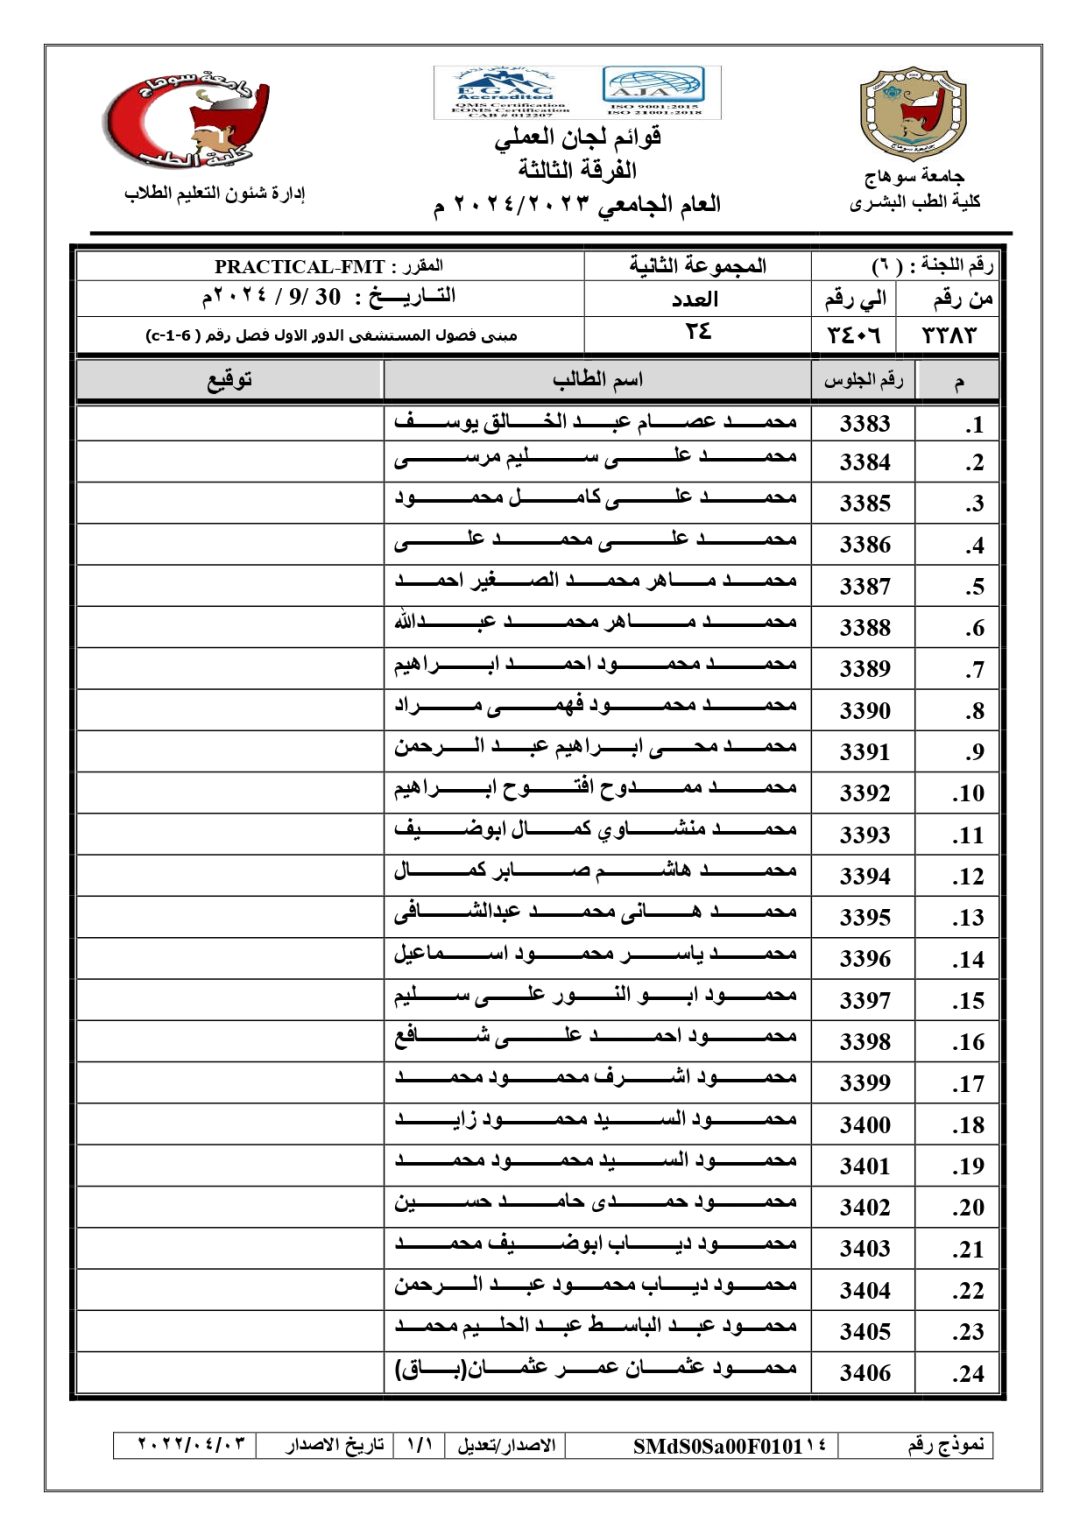 جامعة سوهاج
كلية الطب
إدارة شئون التعليم الطلاب
EGAC
Accredited
QMS Certification
EOMS Certification
CAB # 012207
AJA
ISO 9001:2015
ISO 21001:2018
قوائم لجان العملي
الفرقة الثالثة
العام الجامعي ٢٠٢٤/٢٠٢٣ م
جامعة سوهاج
جامعة سوهاج
كلية الطب البشرى
رقم اللجنة : ( ٦) المجموعة الثانية المقرر : PRACTICAL-FMT
من رقم الي رقم العدد التـاريـــخ : 30 /9/ ٢٠٢٤م
٣٣٨٣ ٣٤٠٦ ٢٤ مبنى فصول المستشفى الدور الاول فصل رقم ( c-1-6)
م رقم الجلوس اسم الطالب توقيع
1. 3383 محمد عصام عبد الخالق يوسف
2. 3384 محمد على سليم مرسى
3. 3385 محمد على كامل محمود
4. 3386 محمد على محمد على
5. 3387 محمد ماهر محمد الصغير احمد
6. 3388 محمد ماهر محمد عبدالله
7. 3389 محمد محمود احمد ابراهيم
8. 3390 محمد محمود فهمى مراد
9. 3391 محمد محى ابراهيم عبد الرحمن
10. 3392 محمد ممدوح افتوح ابراهيم
11. 3393 محمد منشاوي كمال ابوضيف
12. 3394 محمد هاشم صابر كمال
13. 3395 محمد هانى محمد عبدالشافى
14. 3396 محمد ياسر محمود اسماعيل
15. 3397 محمود ابو النور على سليم
16. 3398 محمود احمد على شافع
17. 3399 محمود اشرف محمود محمد
18. 3400 محمود السيد محمود زايد
19. 3401 محمود السيد محمود محمد
20. 3402 محمود حمدى حامد حسين
21. 3403 محمود دياب ابوضيف محمد
22. 3404 محمود دياب محمود عبد الرحمن
23. 3405 محمود عبد الباسط عبد الحليم محمد
24. 3406 محمود عثمان عمر عثمان(باق)
نموذج رقم SMdS0Sa00F0101١٤ الاصدار/تعديل ١/١ تاريخ الاصدار ٢٠٢٢/٠٤/٠٣